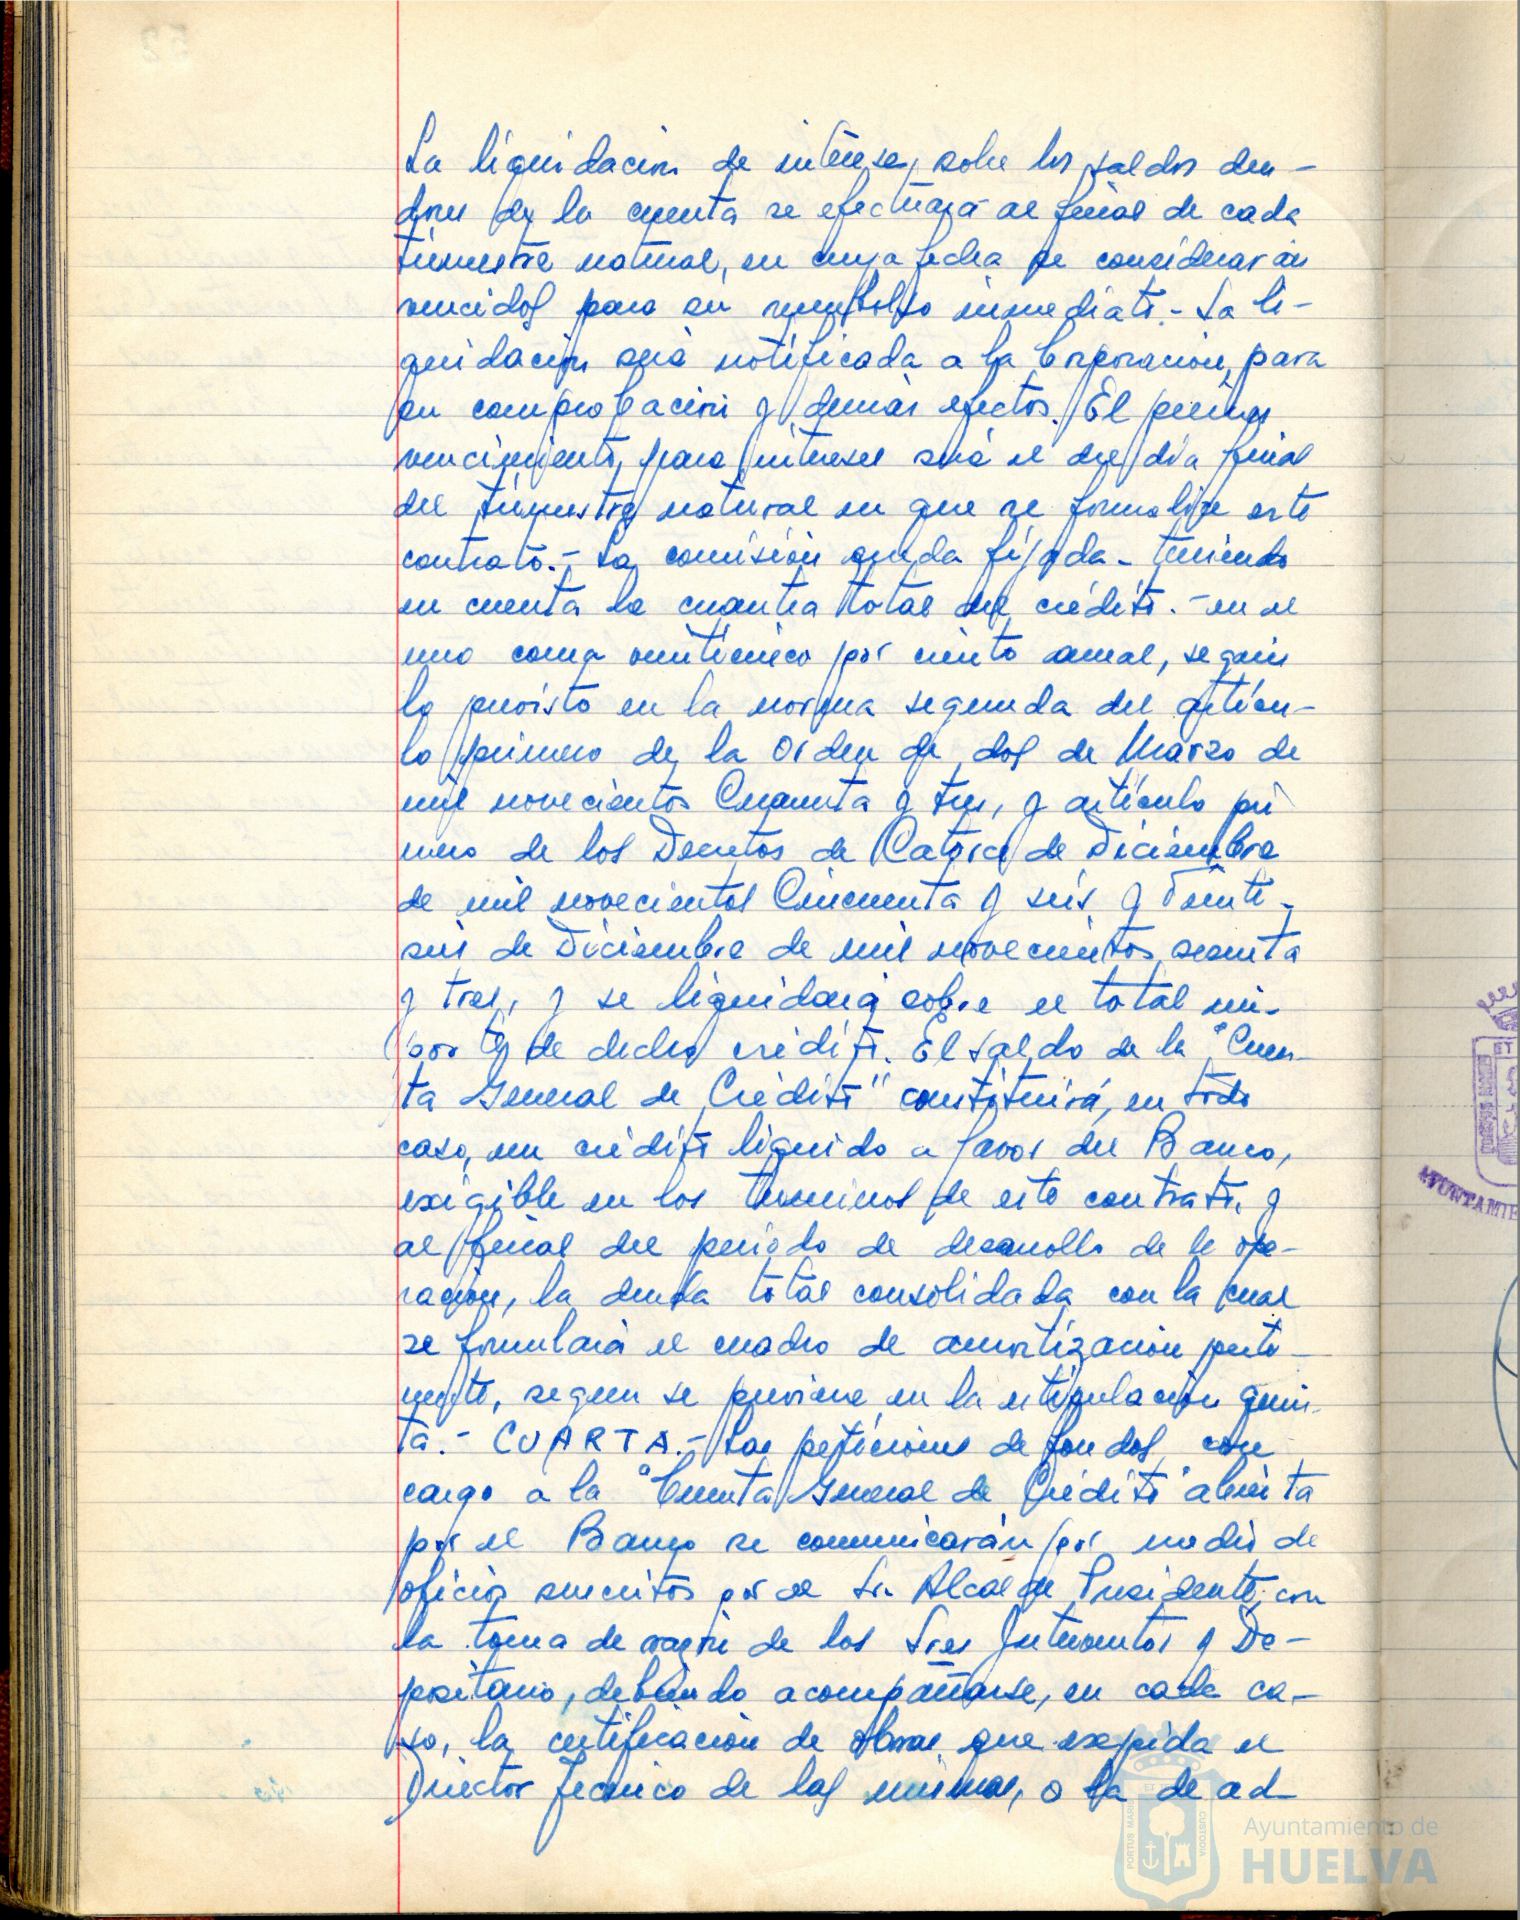 La liquidación de intereses sobre los saldos deu-
dores de la cuenta se efectuará al final de cada
trimestre natural, en cuya fecha se considerarán
vencidos para su reembolso inmediato.- La li-
quidación será notificada a la Corporación, para
su comprobación y demás efectos. El primer
vencimiento para intereses será el del día final
del trimestre natural en que se formalice este
contrato.- La comisión queda fijada - teniendo
en cuenta la cuantía total del crédito.- en el
uno coma veinticinco por ciento anual, según
lo previsto en la norma segunda del artícu-
lo primero de la Orden de dos de Marzo de
mil novecientos Cuarenta y tres, y artículo pri
mero de los Decretos de Catorce de Diciembre
de mil novecientos Cincuenta y seis y Veinti-
seis de Diciembre de mil novecientos sesenta
y tres, y se liquidará sobre el total im-
porte de dicho crédito. El saldo de la "Cuen-
ta General de Crédito" constituirá, en todo
caso, un crédito líquido a favor del Banco,
exigible en los términos de este contrato, y
al final del periodo de desarrollo de la ope-
ración, la deuda total consolidada con la cual
se formulará el cuadro de amortización perti-
nente, según se previene en la estipulación quin-
ta.- CUARTA.- Las peticiones de fondos con
cargo a la "Cuenta General de Crédito" abierta
por el Banco se comunicarán por medio de
oficios suscritos por el Sr. Alcalde Presidente, con
la toma de razón de los Sres Interventor y De-
positario, debiendo acompañarse, en cada ca-
so, la certificación de obras que expida el
Director Técnico de las mismas, o la de ad-
AYUNTAMIE
PORTUS MARIS
ET
CUSTODIA
Ayuntamiento de
HUELVA